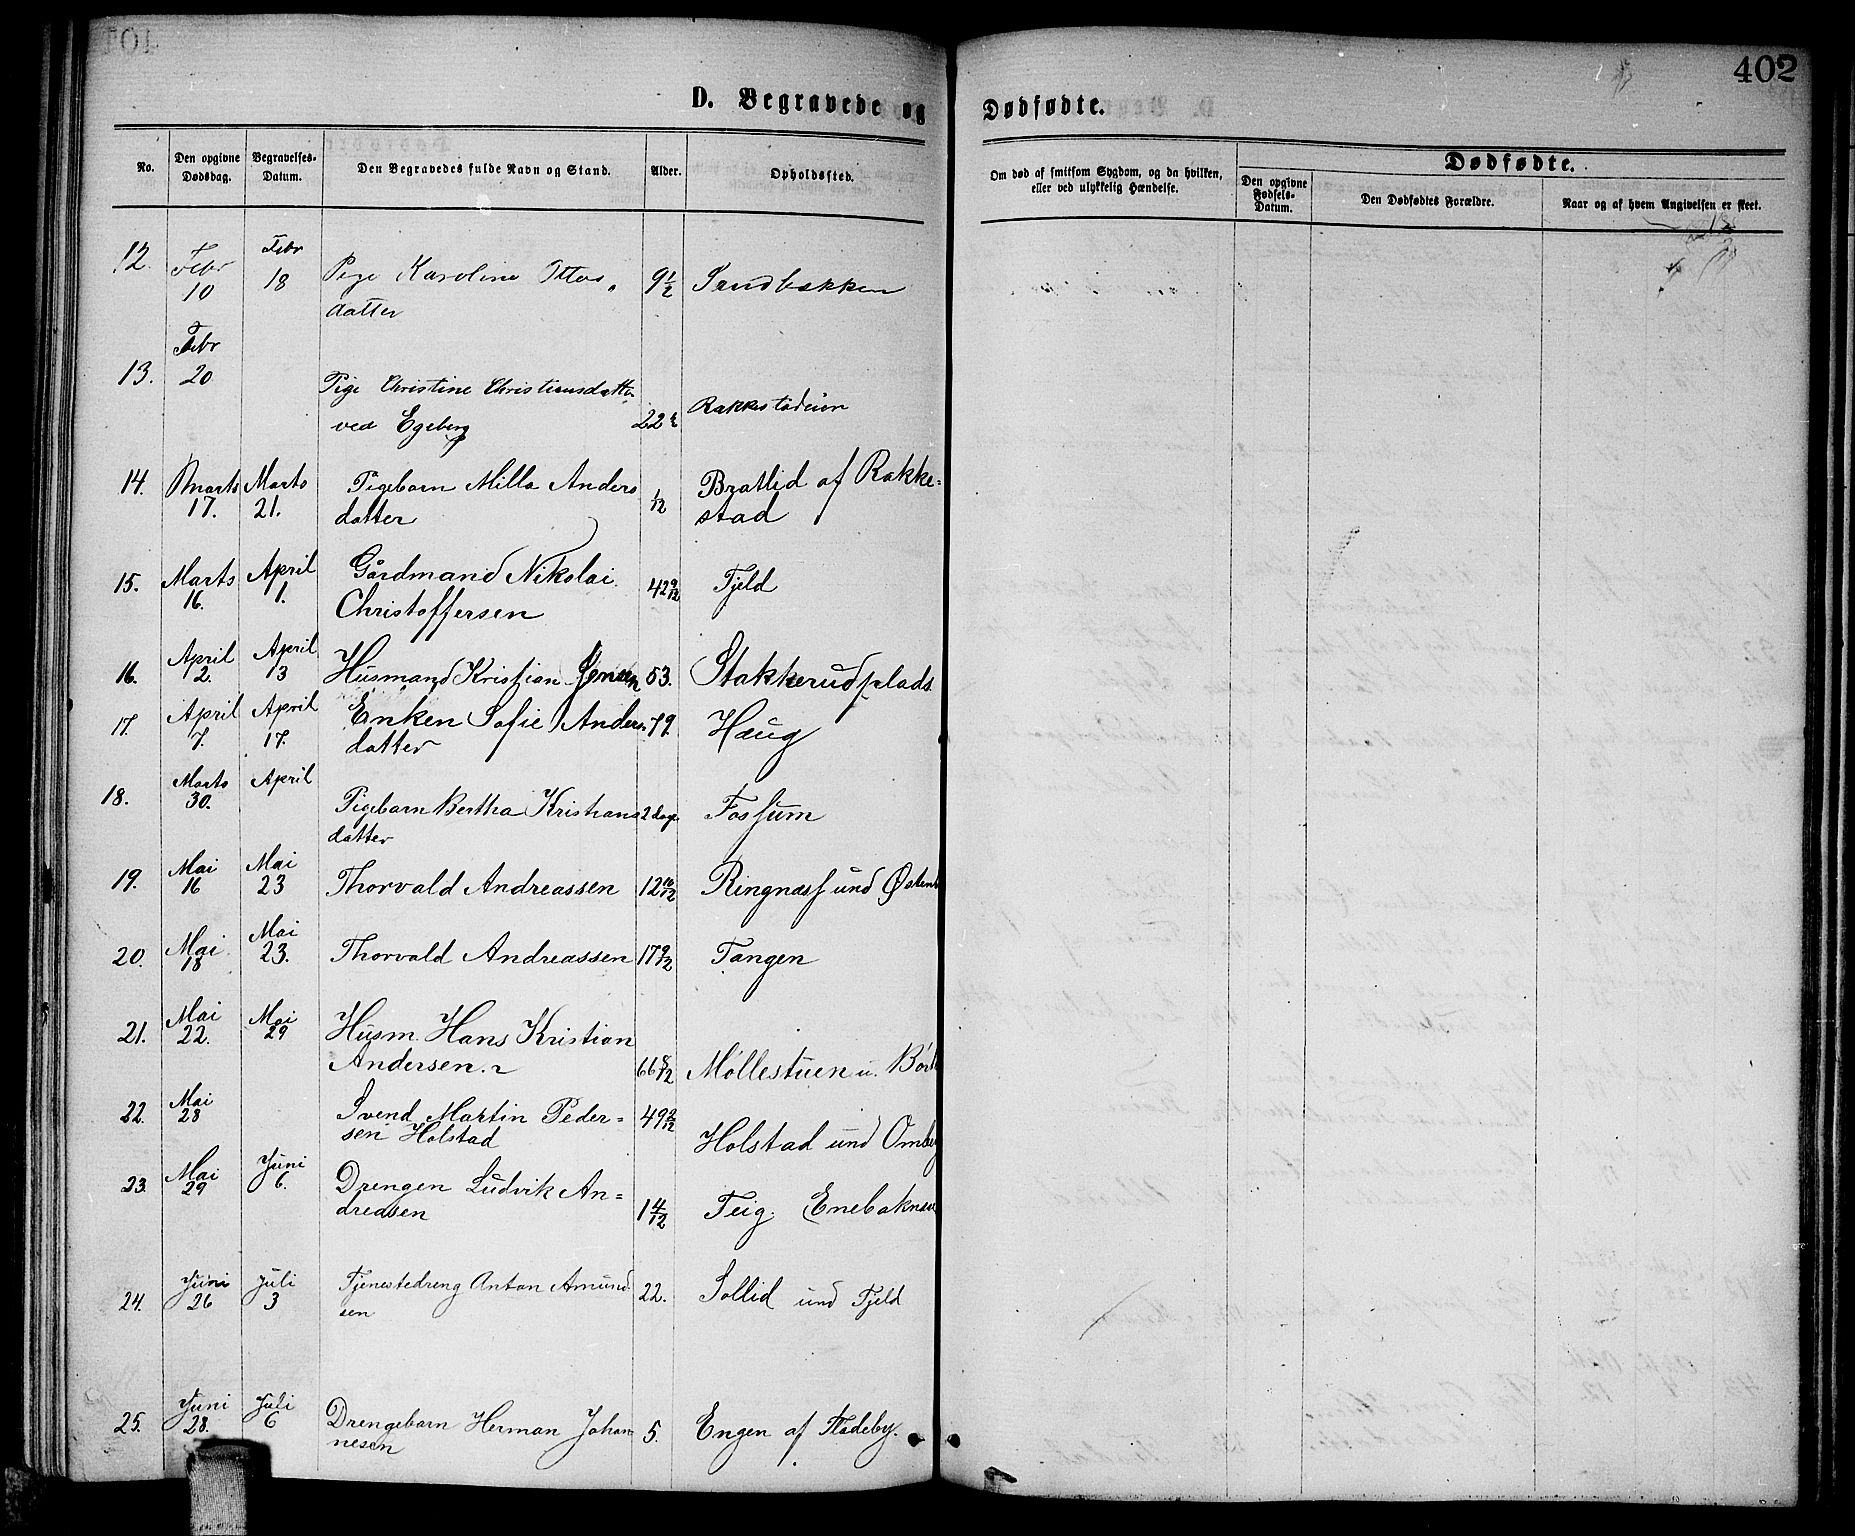 402
D. Begravede og Dødfødte.
No.
Den opgivne Dødsdag.
Begravelses-Datum.
Den Begravedes fulde Navn og Stand.
Alder.
Opholdsted.
Om død af smitsom Sygdom, og da hvilken, eller ved ulykkelig Hændelse.
Dødfødte.
Den opgivne Fødsels-Datum.
Den Dødfødtes Forældre.
Naar og af hvem Angivelsen er skeet.
12. Febr 10 Febr 18 Pige Karoline Ottos 9 1/2 Sandbakken
datter
13. Febr 20 Pige Christine Christiansdatter 22 Rakkestadeien
ved Egeberg
14. Marts 17. Marts 21. Pigebarn Milla Anders 1/12 Bratlid af Rakke-
datter stad
15. Marts 16. April 1. Gårdmand Nikolai 42 9/12 Fjeld
Christoffersen
16. April 2. April 13 Husmand Kristian Jensen 53. Stakkerudplads
17. April 7. April 17. Enken Sofie Anders 79. Haug
datter
18. Marts 30. April Pigebarn Bertha Kristians 2 dage Fossum
datter
19. Mai 16 Mai 23 Thorvald Andreassen 12 10/12 Ringnæs und
20. Mai 18 Mai 23. Thorvald Andreassen 17 9/12 Tangen
21. Mai 22. Mai 29 Husm. Hans Kristian
Andersen. 66 8/12 Møllestuen u.
22. Mai 28 Svend Martin Peder= 49 2/12
sen Holstad Holstad und
23. Mai 29 Juni 6. Drengen Ludvik An=
dreasen 1 4/12 Teig. Enebaknes
24. Juni 26 Juli 3 Tjenestedreng Anton Amund 22. Sollid und Fjeld
sen
25. Juni 28. Juli 6 Drengebarn Herman Johan 5. Engen af Fladeby.
nesen